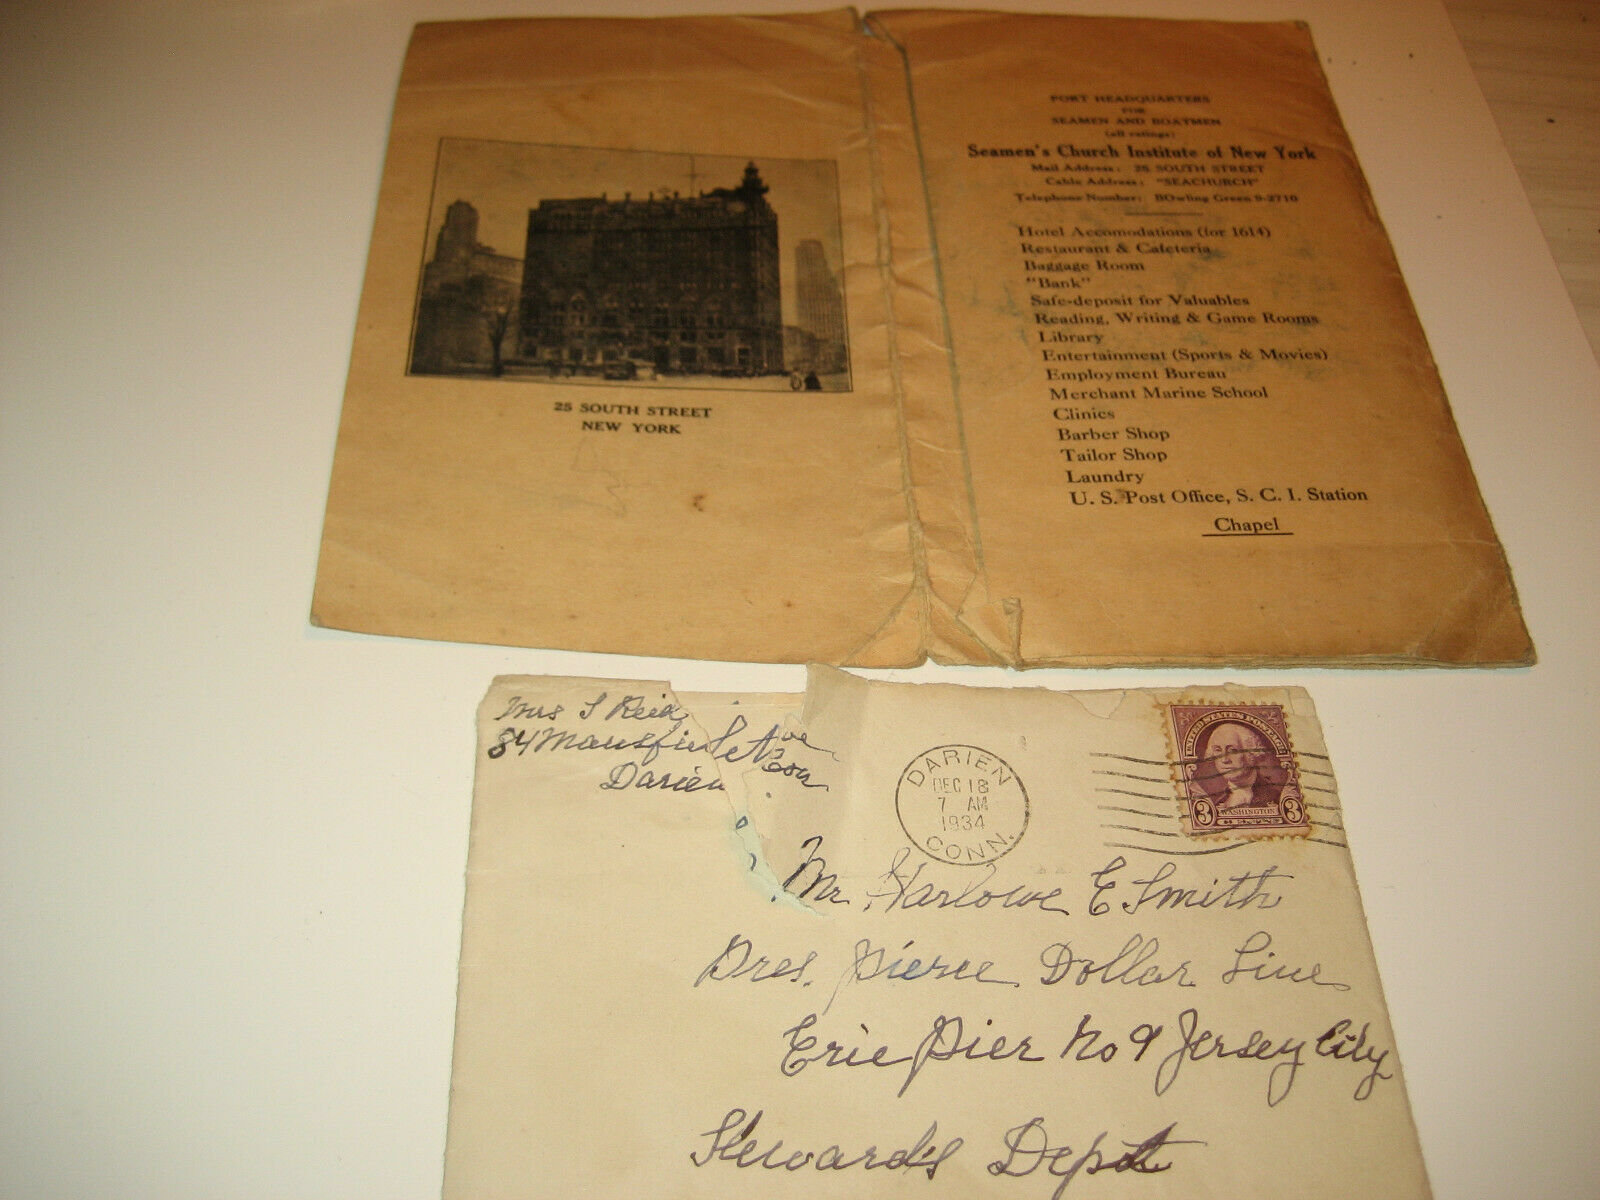 25 SOUTH STREET
NEW YORK
PORT HEADQUARTERS
FOR
SEAMEN AND BOATMEN
(all ratings)
Seamen's Church Institute of New York
Mail Address: 25 SOUTH STREET
Cable Address: "SEACHURCH"
Telephone Number: BOwling Green 9-2710
Hotel Accomodations (for 1614)
Restaurant & Cafeteria
Baggage Room
"Bank"
Safe-deposit for Valuables
Reading, Writing & Game Rooms
Library
Entertainment (Sports & Movies)
Employment Bureau
Merchant Marine School
Clinics
Barber Shop
Tailor Shop
Laundry
U. S. Post Office, S. C. I. Station
Chapel
Mrs S Reid
84 Mansfield Ave
Darien Conn
DARIEN
DEC 18
7 AM
1934
CONN.
UNITED STATES POSTAGE
3 WASHINGTON 3
Mr Harlowe E Smith
Pres. Pierce Dollar Line
Erie Pier No 9 Jersey City
Steward's Dept